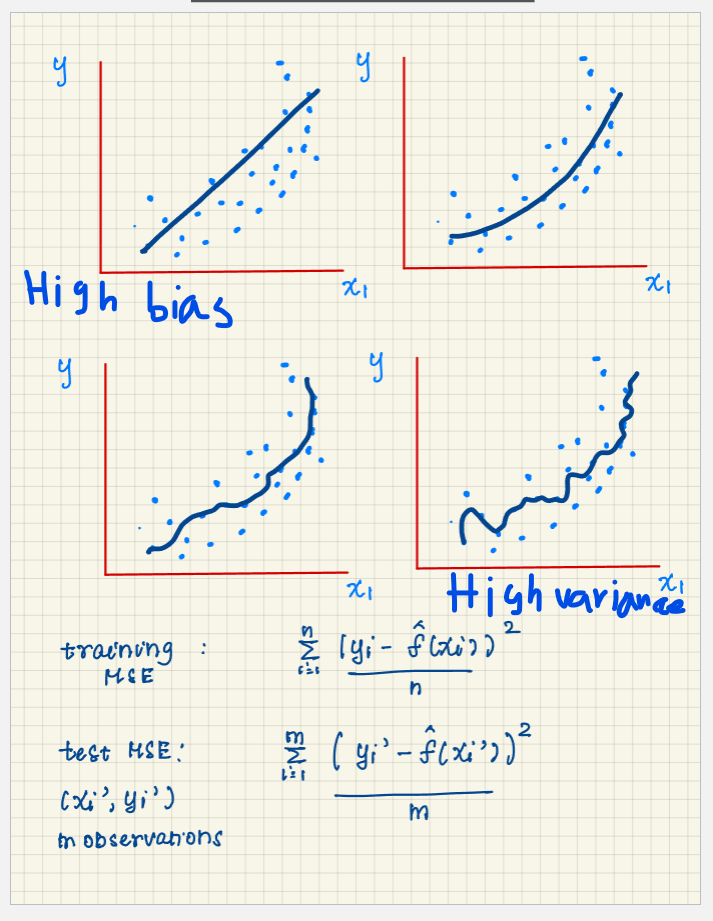 y
y
x₁
x₁
High bias
y
y
x₁
x₁
High variance
training : n Σ i=1 (yi - f̂(xi))² / n
MSE
test MSE: m Σ i=1 (yi' - f̂(xi'))² / m
(xi', yi')
m observations